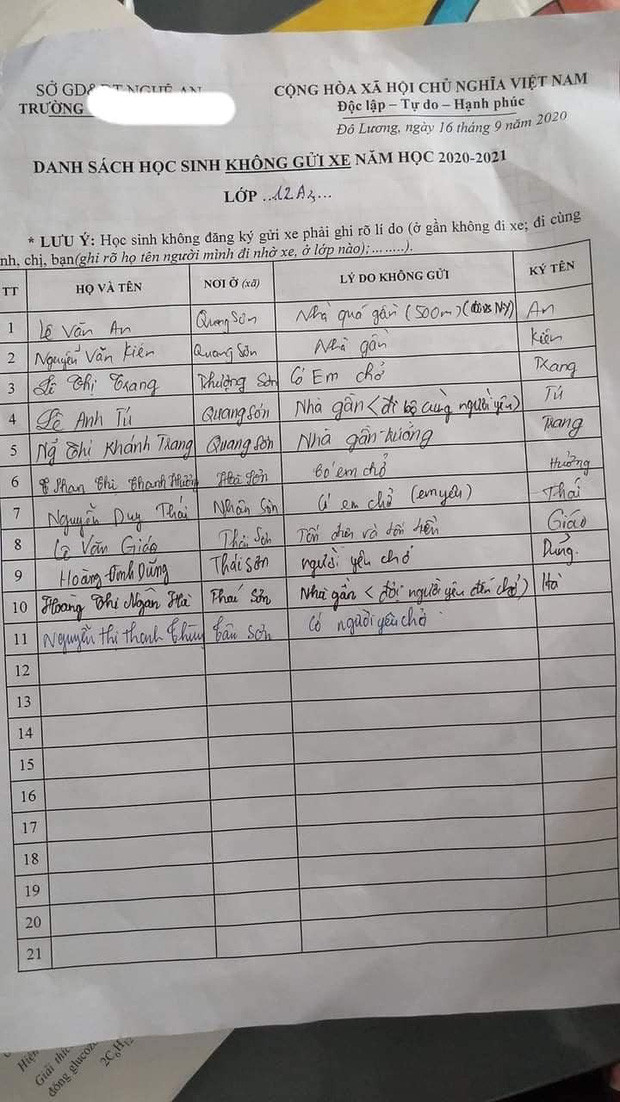 SỞ GD&ĐT NGHỆ AN
TRƯỜNG
CỘNG HÒA XÃ HỘI CHỦ NGHĨA VIỆT NAM
Độc lập – Tự do – Hạnh phúc
Đô Lương, ngày 16 tháng 9 năm 2020
DANH SÁCH HỌC SINH KHÔNG GỬI XE NĂM HỌC 2020-2021
LỚP ...12A3...
* LƯU Ý: Học sinh không đăng ký gửi xe phải ghi rõ lí do (ở gần không đi xe; đi cùng
nh, chị, bạn(ghi rõ họ tên người mình đi nhờ xe, ở lớp nào);........).
TT HỌ VÀ TÊN NƠI Ở (xã) LÝ DO KHÔNG GỬI KÝ TÊN
1 Lê Văn An Quang Sơn Nhà quá gần (500m) An
2 Nguyễn Văn Kiên Quang Sơn Nhà gần Kiên
3 Lê Thị Trang Thượng Sơn Có Em chở Trang
4 Lê Anh Tú Quang Sơn Nhà gần < đi bộ cùng người yêu) Tú
5 Ng Thi Khánh Trang Quang Sơn Nhà gần trường Trang
6 Phan Thi Thanh Hường Đà Sơn Có em chở Hường
7 Nguyễn Duy Thái Nhân Sơn Có em chở (em yêu) Thái
8 Lê Văn Giáo Thái Sơn Tốn điện và tốn tiền Giáo
9 Hoàng Đình Dũng Thái Sơn người yêu chở Dũng.
10 Hoàng Thi Ngân Hà Thái Sơn Nhà gần < đợi người yêu đến chở) Hà
11 Nguyễn thị thanh thùy Tân Sơn Có người yêu chở
12
13
14
15
16
17
18
19
20
21
Giải thíc
đóng glucoz